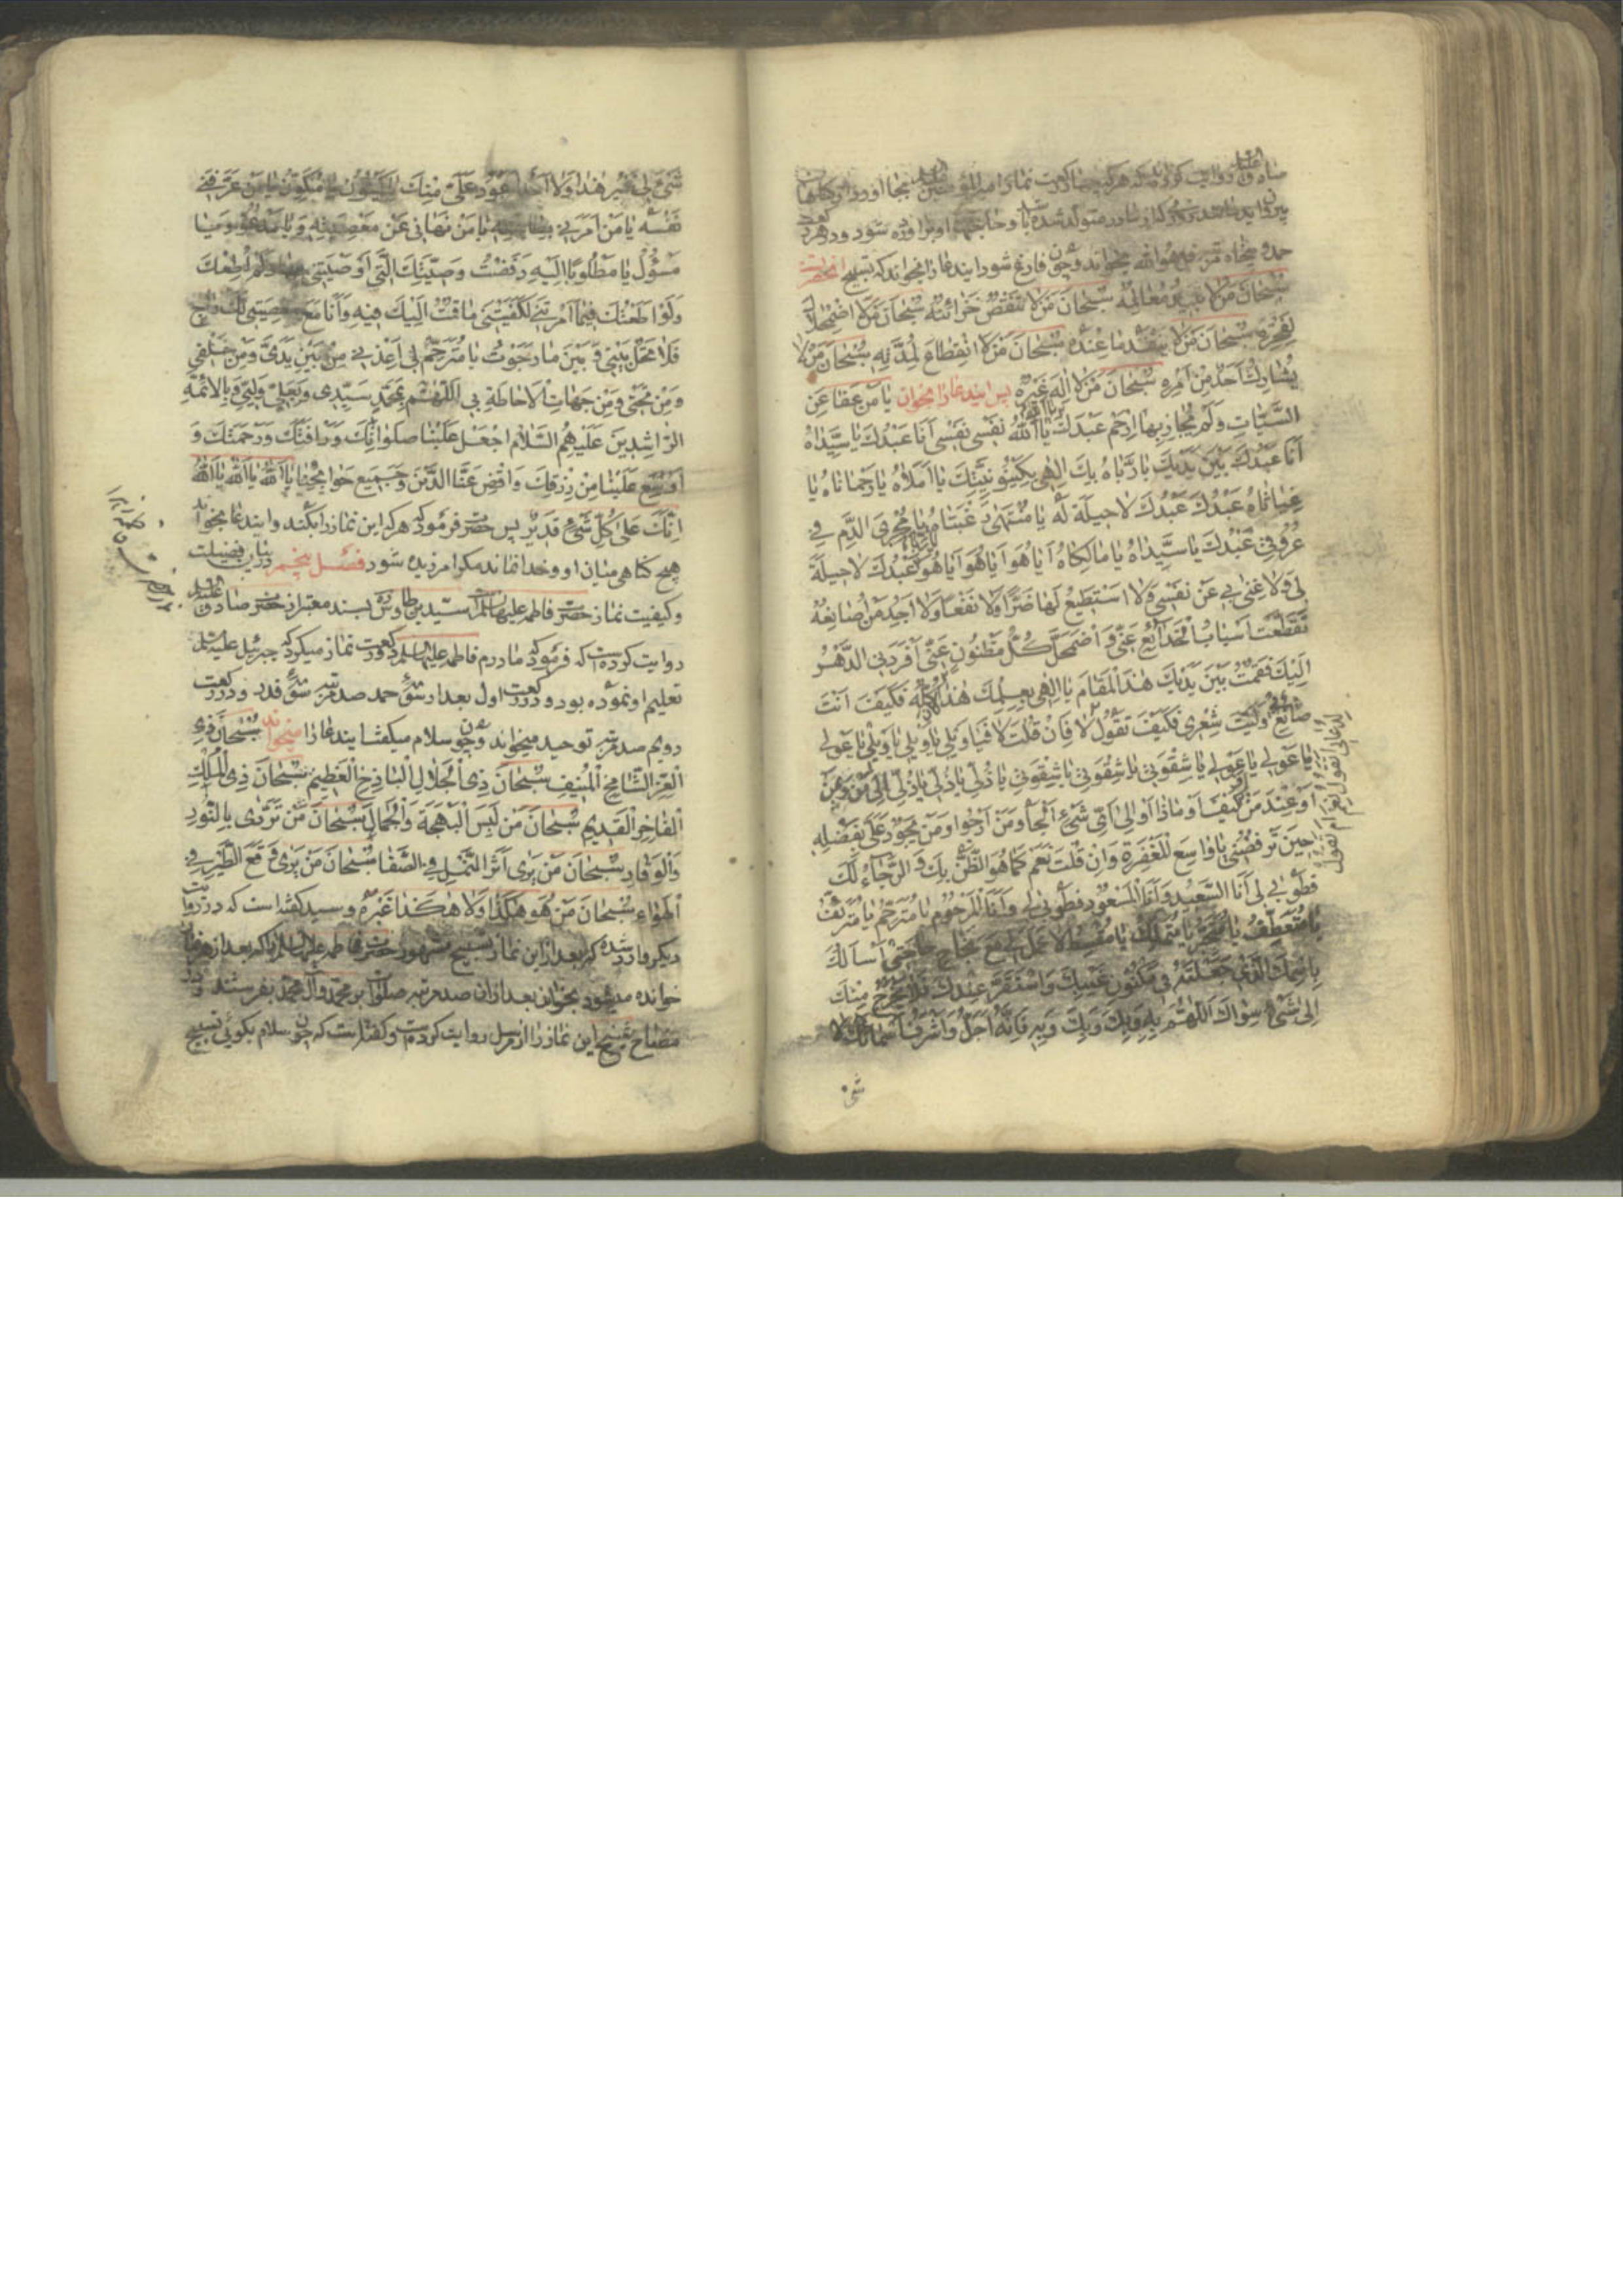 صادق روایت کرده که هر که چهار رکعت نماز امیر المؤمنین بجا آورد از گناهان
بیرون آید مانند روزی که از مادر متولد شده باشد و حاجتهای او برآورده شود و در هر رکعت
حمد و پنجاه مرتبه قل هو الله بخواند و چون فارغ شود این دعا را بخواند که تسبیح آنحضرتست
سُبْحَانَ مَنْ لَا تَبِيدُ مَعَالِمُهُ سُبْحَانَ مَنْ لَا تَنْقُصُ خَزَائِنُهُ سُبْحَانَ مَنْ لَا اضْمِحْلَالَ
لِفَخْرِهِ سُبْحَانَ مَنْ لَا يَنْفَدُ مَا عِنْدَهُ سُبْحَانَ مَنْ لَا انْقِطَاعَ لِمُدَّتِهِ سُبْحَانَ مَنْ لَا
يُشَارِكُ أَحَدًا مِنْ أَمْرِهِ سُبْحَانَ مَنْ لَا إِلَهَ غَيْرُهُ پس این دعا را بخوان يَا مَنْ عَفَا عَنِ
السَّيِّئَاتِ وَلَمْ يُجَازِ بِهَا ارْحَمْ عَبْدَكَ يَا اللهُ نَفْسِي نَفْسِي أَنَا عَبْدُكَ يَا سَيِّدَاهُ
أَنَا عَبْدُكَ بَيْنَ يَدَيْكَ يَا رَبَّاهُ بِكَ إِلَهِي بِكَيْنُونِيَّتِكَ يَا أَمَلَاهُ يَا رَحْمَانَاهُ يَا
غِيَاثَاهُ عَبْدُكَ عَبْدُكَ لَا حِيلَةَ لَهُ يَا مُنْتَهَى رَغْبَتَاهُ يَا مُجْرِيَ الدَّمِ فِي
عُرُوقِي عَبْدُكَ يَا سَيِّدَاهُ يَا مَالِكَاهُ أَيَا هُوَ أَيَا هُوَ أَيَا هُوَ عَبْدُكَ لَا حِيلَةَ
لِي وَلَا غِنَى بِي عَنْ نَفْسِي وَلَا أَسْتَطِيعُ لَهَا ضَرًّا وَلَا نَفْعًا وَلَا أَجِدُ مَنْ أُصَانِعُهُ
تَقَطَّعَتْ أَسْبَابُ الْخَدَائِعِ عَنِّي وَاضْمَحَلَّ كُلُّ مَظْنُونٍ عَنِّي أَفْرَدَنِي الدَّهْرُ
إِلَيْكَ فَقُمْتُ بَيْنَ يَدَيْكَ هَذَا الْمَقَامَ يَا إِلَهِي بِعِلْمِكَ هَذَا كُلُّهُ فَكَيْفَ أَنْتَ
صَانِعٌ وَلَيْتَ شِعْرِي فَكَيْفَ تَقُولُ لَا فَإِنْ قُلْتَ لَا فَيَا وَيْلِي يَا وَيْلِي يَا وَيْلِي يَا عَوْلِي
يَا عَوْلِي يَا عَوْلِي يَا شِقْوَتِي يَا شِقْوَتِي يَا شِقْوَتِي يَا ذُلِّي يَا ذُلِّي يَا ذُلِّي إِلَى مَنْ وَمِمَّنْ
أَوْ عِنْدَ مَنْ كَيْفَ أَوْ مَاذَا أَوْ إِلَى أَيِّ شَيْءٍ أَلْجَأُ وَمَنْ أَرْجُو أَوْ مَنْ يَجُودُ عَلَيَّ بِفَضْلِهِ
حِينَ تَرْفُضُنِي يَا وَاسِعَ الْمَغْفِرَةِ وَإِنْ قُلْتَ نَعَمْ كَمَا هُوَ الظَّنُّ بِكَ وَالرَّجَاءُ لَكَ
فَطُوبَى لِي أَنَا السَّعِيدُ وَأَنَا الْمَسْعُودُ فَطُوبَى لِي وَأَنَا الْمَرْحُومُ يَا مُتَرَحِّمُ يَا مُتَرَئِّفُ
يَا مُتَعَطِّفُ يَا مُتَجَبِّرُ يَا مُتَمَلِّكُ يَا مُقْسِطُ لَا عَمَلَ لِي مَعَ نَجَاحِ حَاجَتِي أَسْأَلُكَ
بِاسْمِكَ الَّذِي جَعَلْتَهُ فِي مَكْنُونِ غَيْبِكَ وَاسْتَقَرَّ عِنْدَكَ فَلَا يَخْرُجُ مِنْكَ
إِلَى شَيْءٍ سِوَاكَ اللَّهُمَّ بِهِ وَبِكَ وَبِكَ وَبِهِ فَإِنَّهُ أَجَلُّ وَأَشْرَفُ أَسْمَائِكَ لَا
شیء
شَيْءَ لِي غَيْرُ هَذَا وَلَا أَحَدَ أَعْوَدُ عَلَيَّ مِنْكَ يَا كَيْنُونُ يَا مُكَوِّنُ يَا مَنْ عَرَّفَنِي
نَفْسَهُ يَا مَنْ أَمَرَنِي بِطَاعَتِهِ يَا مَنْ نَهَانِي عَنْ مَعْصِيَتِهِ وَيَا مَدْعُوُّ وَيَا
مَسْؤُولُ يَا مَطْلُوبًا إِلَيْهِ رَفَضْتُ وَصِيَّتَكَ الَّتِي أَوْصَيْتَنِي بِهَا وَلَمْ أُطِعْكَ
وَلَوْ أَطَعْتُكَ فِيمَا أَمَرْتَنِي لَكَفَيْتَنِي مَا قُمْتُ إِلَيْكَ فِيهِ وَأَنَا مَعَ مَعْصِيَتِي لَكَ رَاجٍ
فَلَا تَحُلْ بَيْنِي وَبَيْنَ مَا رَجَوْتُ يَا مُتَرَحِّمُ لِي أَعِذْنِي مِنْ بَيْنِ يَدَيَّ وَمِنْ خَلْفِي
وَمِنْ تَحْتِي وَمِنْ جِهَاتِ الْإِحَاطَةِ بِي اللَّهُمَّ بِمُحَمَّدٍ سَيِّدِي وَبِعَلِيٍّ وَلِيِّي وَبِالْأَئِمَّةِ
الرَّاشِدِينَ عَلَيْهِمُ السَّلَامُ اجْعَلْ عَلَيْنَا صَلَوَاتِكَ وَرَأْفَتَكَ وَرَحْمَتَكَ وَ
أَوْسِعْ عَلَيْنَا مِنْ رِزْقِكَ وَاقْضِ عَنَّا الدَّيْنَ وَجَمِيعَ حَوَائِجِنَا يَا اللهُ يَا اللهُ يَا اللهُ
إِنَّكَ عَلَى كُلِّ شَيْءٍ قَدِيرٌ پس حضرت فرمود که هر که این نماز را بکند و این دعا بخواند
هیچ گناهی میان او و خدا نماند مگر آمرزیده شود فصل پنجم در بیان فضیلت
وکیفیت نماز حضرت فاطمه علیها السلم سید بن طاوس بسند معتبر از حضرت صادق علیه السلم
روایت کرده است که فرمود که مادرم فاطمه علیها السلم دو رکعت نماز میکرد که جبرئیل علیه السلم
تعلیم او نموده بود و در رکعت اول بعد از سورۀ حمد صد مرتبه سورۀ قدر و در رکعت
دویم صد مرتبه توحید میخواند و چون سلام میگفت این دعا را میخواند سُبْحَانَ ذِي
الْعِزِّ الشَّامِخِ الْمُنِيفِ سُبْحَانَ ذِي الْجَلَالِ الْبَاذِخِ الْعَظِيمِ سُبْحَانَ ذِي الْمُلْكِ
الْفَاخِرِ الْقَدِيمِ سُبْحَانَ مَنْ لَبِسَ الْبَهْجَةَ وَالْجَمَالَ سُبْحَانَ مَنْ تَرَدَّى بِالنُّورِ
وَالْوَقَارِ سُبْحَانَ مَنْ يَرَى أَثَرَ النَّمْلِ فِي الصَّفَا سُبْحَانَ مَنْ يَرَى وَقْعَ الطَّيْرِ فِي
الْهَوَاءِ سُبْحَانَ مَنْ هُوَ هَكَذَا وَلَا هَكَذَا غَيْرُهُ وسید گفته است که در روایت
دیگر وارد شده که بعد از این نماز تسبیح مشهور حضرت فاطمه علیها السلم را که بعد از هر نماز
خوانده میشود بخوان بعد از آن صد مرتبه صلوات بر محمد و آل محمد بفرستد و در
مصباح شیخ این نماز را از مرسل روایت کرده است و گفته است که چون سلام بگوئی تسبیح